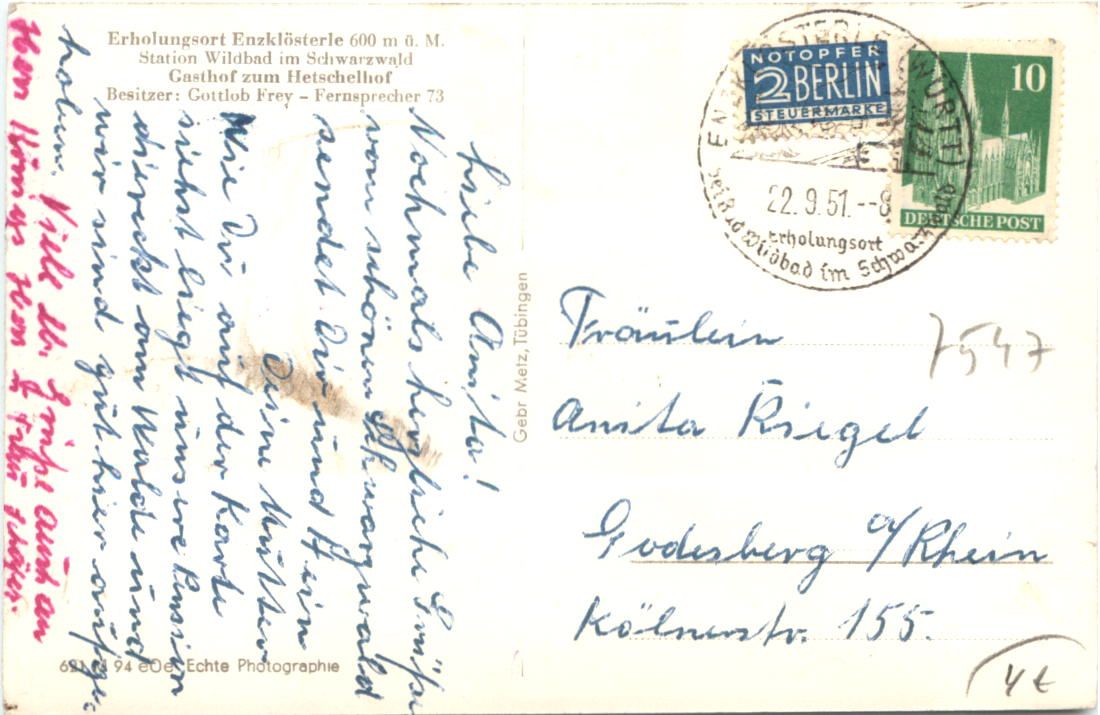 Erholungsort Enzklösterle 600 m ü. M.
Station Wildbad im Schwarzwald
Gasthof zum Hetschelhof
Besitzer: Gottlob Frey – Fernsprecher 73
Liebe Anita!
Nochmals herzliche Grüße
vom schönen Schwarzwald
sendet Dir und Hein
Deine Mutter
Wie Du auf der Karte
siehst liegt unsere Pension
direckt am Walde und
wir sind gut hier aufge-
hoben. Viele Grüße auch an
Herr Königs Herr u Frau Schäfer.
621 94 eOe. Echte Photographie
Gebr Metz, Tübingen
NOTOPFER
2 BERLIN
STEUERMARKE
10
DEUTSCHE POST
ENZKLÖSTERLE (WÜRTT)
22.9.51.--8
Erholungsort
bei Bad Wildbad im Schwarzwald
Fräulein
Anita Riegel
Godesberg a/Rhein
Kölnerstr. 155.
7547
4 €